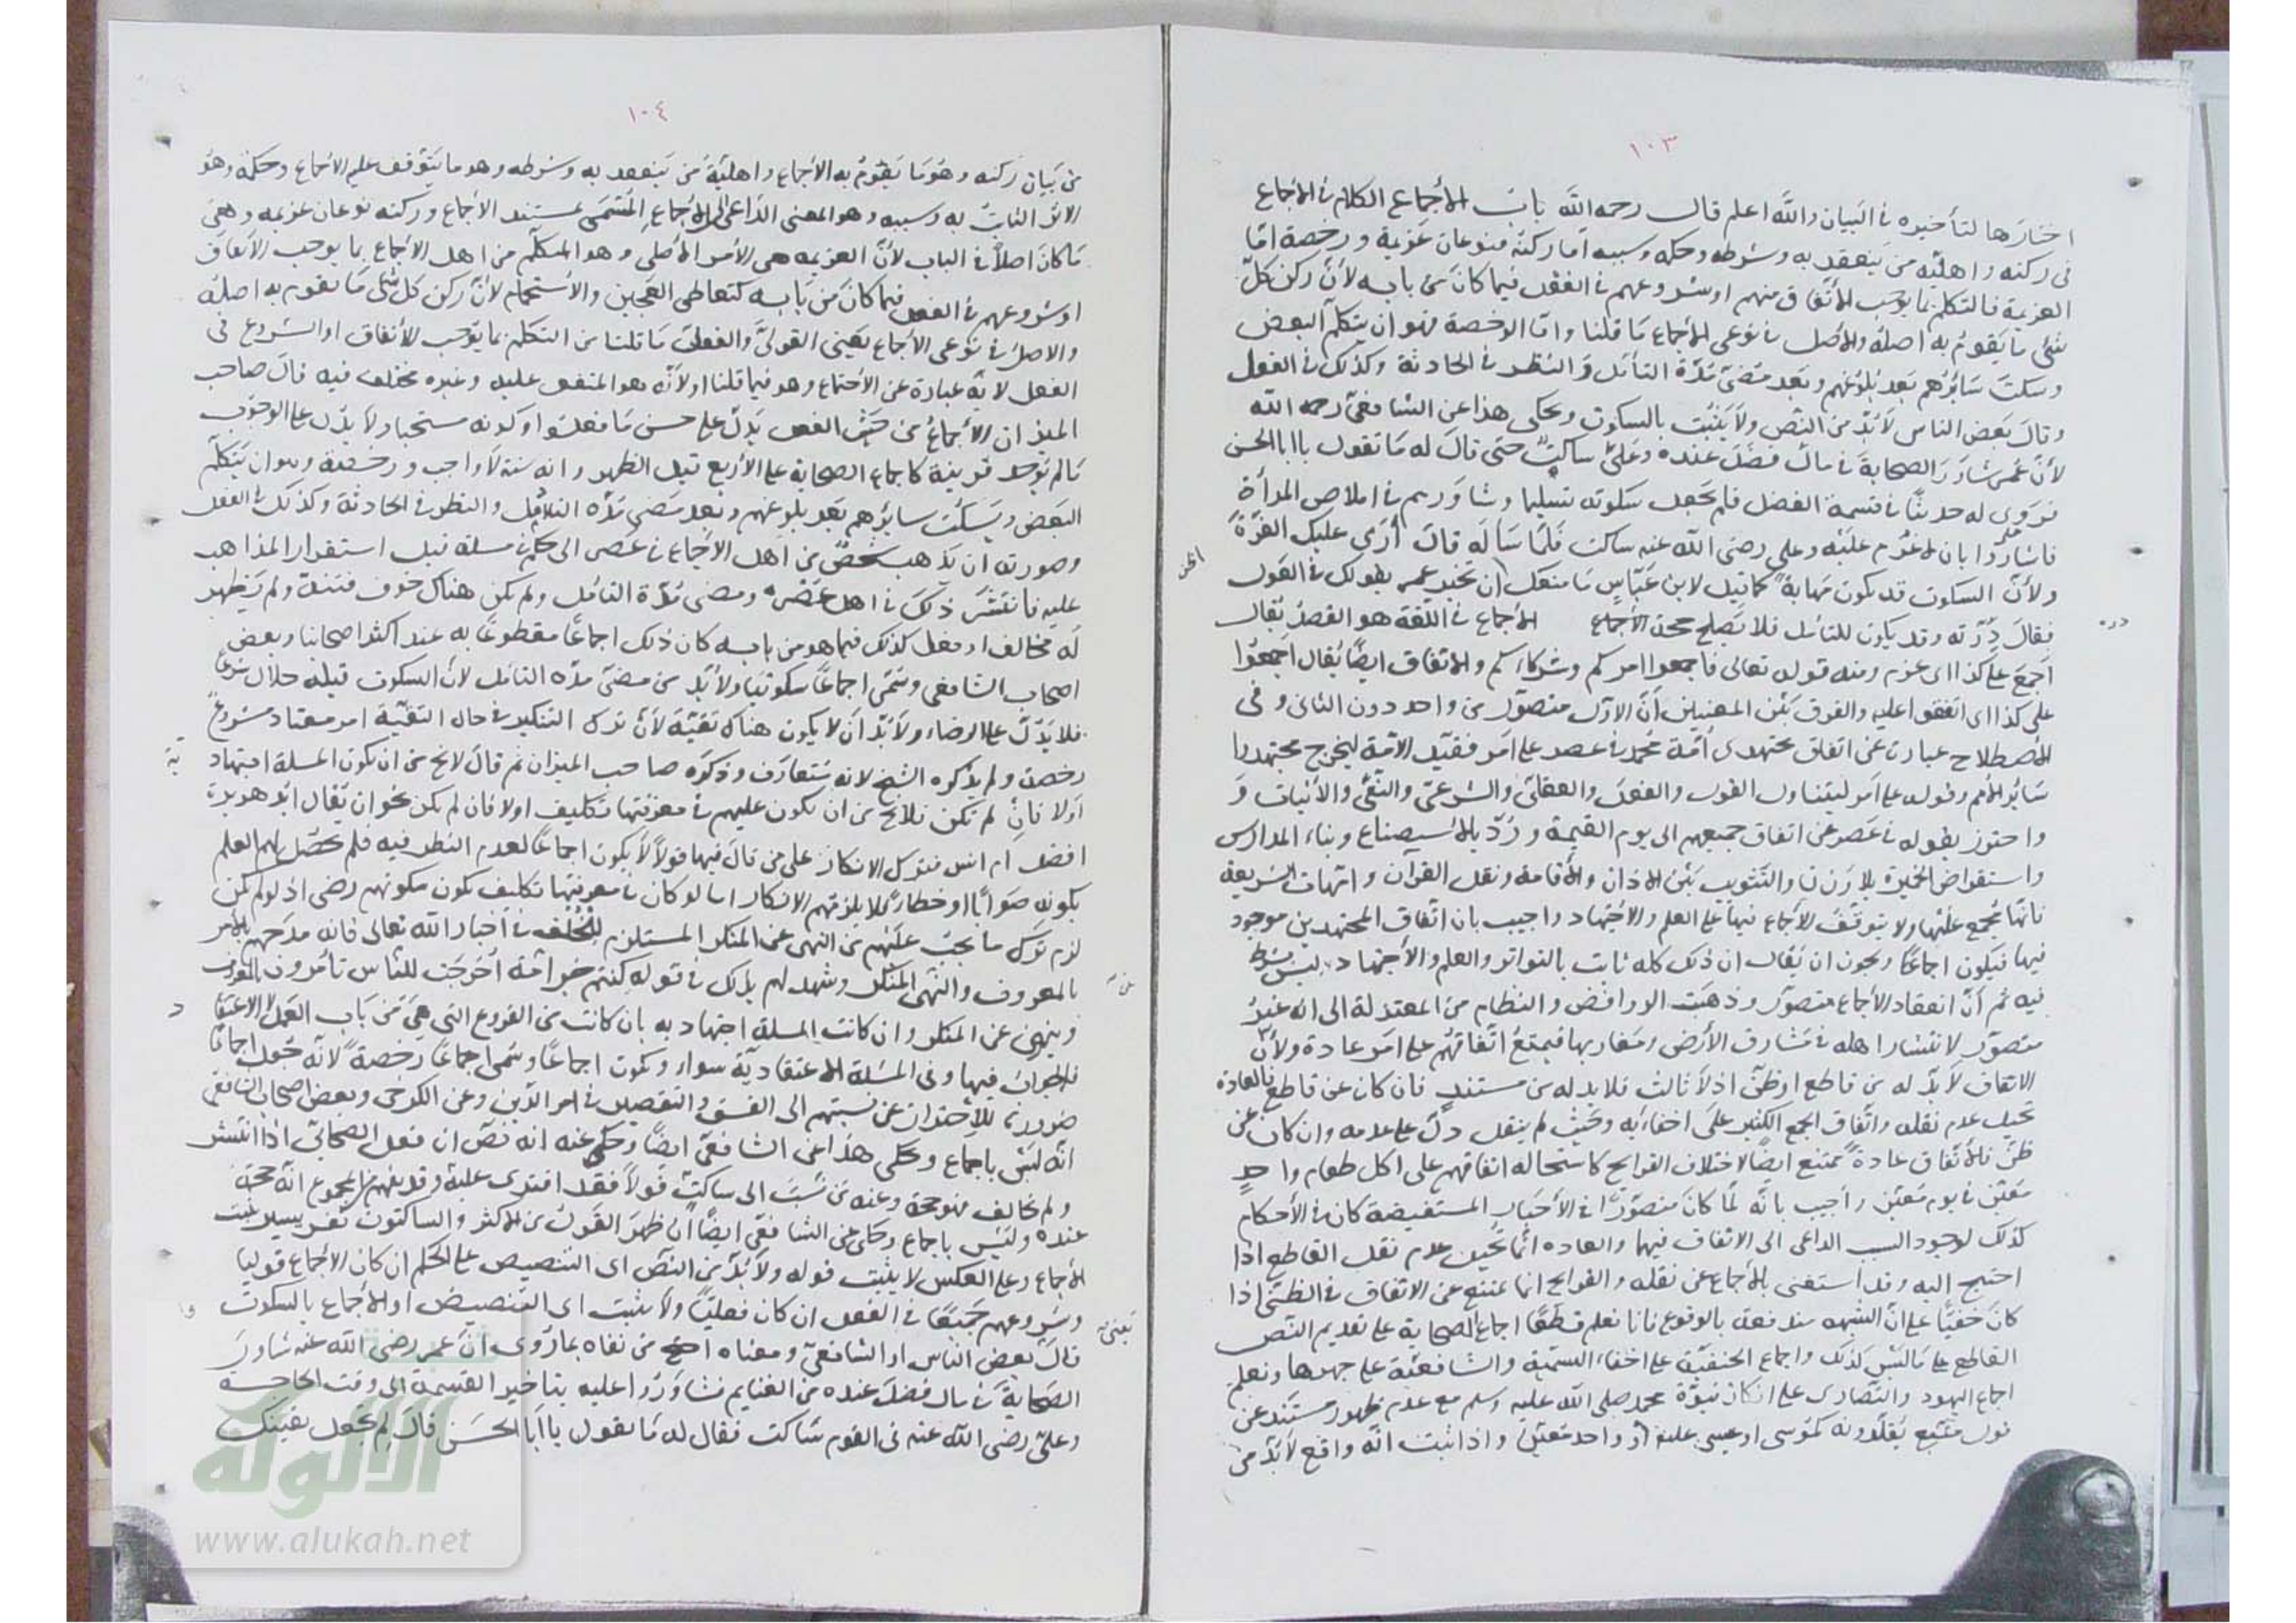 ١٠٣
اختارها لتأخيره في البيان والله اعلم قال رحمه الله باب الأجماع الكلام في الأجماع
في ركنه واهليّه من ينعقد به وشرطه وحكمه وسببه اما ركنه فنوعان عزيمة ورخصة امّا
العزيمة فالتكلم بما يوجب الأتّفاق منهم او شروعهم في الفعل فيما كان من بابه لأنّ ركن كلّ
شئ ما يقوم به اصله والأصل في نوعي الأجماع ما قلنا وامّا الرخصة فهو ان يتكلّم البعض
وسكت سائرهم بعد بلوغهم وبعد مضيّ مدّة التأمّل والنظر في الحادثة وكذلك في الفعل
وقال بعض الناس لا بدّ من النصّ ولا يثبت بالسكوت ويحكى هذا عن الشافعيّ رحمه الله
لأنّ عمر شاور الصحابة في مال فضل عنده وعليّ ساكتٌ حتى قال له ما تقول يا ابا الحسن
فروى له حديثا في قسمة الفضل فلم يجعل سكوته تسليما وشاورهم في املاص المرأة
فاشاروا بان لا غرم عليه وعلي رضى الله عنه ساكت فلمّا سأله قال أرى عليك الغرّة
الحق
ولأنّ السكوت قد يكون مهابةً كما قيل لابن عبّاس ما منعك ان تخبر عمر بقولك في العول
فقال درّته وقد يكون للتأمل فلا يصلح حجة الأجماع في اللغة هو القصد يقال
اجمع على كذا اى عزم ومنه قوله تعالى فاجمعوا امركم وشركاءكم والاتفاق ايضًا يقال اجمعوا
على كذا اى اتفقوا عليه والفرق بين المعنيين أنّ الاوّل متصوّر من واحد دون الثاني وفي
الأصطلاح عبارة عن اتفاق مجتهدى أمّة محمد في عصر على امر فقيّد الأمّة ليخرج مجتهدوا
سائر الأمم وقوله على امر ليتناول القول والفعل والعقليّ والشرعيّ والنفي والأثبات و
واحترز بقوله في عصر عن اتفاق جميعهم الى يوم القيمة ورُدّ بالأستصناع وبناء المدارس
واستقراض الخميرة بلا وزن والتثويب بين الاذان والأقامة ونقل القرآن وامّهات الشريعة
فانّها مجمع عليها ولا يتوقّف الأجماع فيها على العلم والاجتهاد واجيب بان اتّفاق المجتهدين موجود
فيها فيكون اجماعًا ويجوز ان يقال ان ذلك كله ثابت بالتواتر والعلم والأجتهاد ليس بشرط
فيه ثم أنّ انعقاد الأجماع متصوّر وذهبت الروافض والنظام من المعتزلة الى انه غير
متصوّر لانتشار اهله في مشارق الأرض ومغاربها فيمتنع اتّفاقهم على امر عادة ولأنّ
الاتفاق لا بدّ له من قاطع او ظنّ اذ لا ثالث فلا بد له من مستند فان كان عن قاطع فالعادة
تحيل عدم نقله واتّفاق الجمع الكثير على اخفائه وحيث لم ينقل دلّ على عدمه وان كان عن
ظنّ فالأتّفاق عادةً ممتنع ايضًا لاختلاف القرايح كاستحالة اتفاقهم على اكل طعام واحدٍ
معيّن في يوم معيّن واجيب بانّه لمّا كان متصوّرًا في الأخبار المستفيضة كان في الأحكام
كذلك لوجود السبب الداعى الى الاتفاق فيهما والعاده انّما تحيل عدم نقل القاطع اذا
احتيج اليه وقد استغنى بالأجماع عن نقله والقرايح انما تمتنع عن الاتفاق في الظنّيّ اذا
كان خفيًّا على انّ الشبهه مندفعة بالوقوع فانا نعلم قطعًا اجماع الصحابة على تقديم النصّ
القاطع على ما ليس كذلك واجماع الحنفيّة على اخفاء التسمية والشافعيّة على جهرها ونعلم
اجماع اليهود والنصارى على انكار نبوّة محمد صلى الله عليه وسلم مع عدم ظهور مستند عن
قول متّبع يقلّدونه كموسى او عيسى عليه او واحد معيّن واذا ثبت انّه واقع لا بدّ من
١٠٤
من بيان ركنه وهو ما يقوم به الأجماع واهليّة من ينعقد به وشرطه وهو ما يتوقف عليه الأجماع وحكمه وهو
الاثر الثابت به وسببه وهو المعنى الدّاعى الى الأجماع المسمّى بمستند الأجماع وركنه نوعان عزيمه وهى
ما كان اصلًا في الباب لأنّ العزيمه هى الأمر الأصلى وهو المتكلّم من اهل الأجماع بما يوجب الأتفاق
او شروعهم في الفعل فيما كان من بابه كتعاطى العجين والأستحمام لأنّ ركن كل شئ ما يقوم به اصله
والاصل في نوعى الأجماع يعنى القوليّ والفعليّ ما قلنا من التكلم بما يوجب الأتفاق او الشروع في
الفعل لانّه عبارة عن الاجتماع وهو فيما قلنا اولا انّه هو المتفق عليه وغيره مختلف فيه قال صاحب
الميزان الأجماع من حيث الفعل يدلّ على حسن ما فعلوا وكونه مستحبا ولا يدلّ على الوجوب
ما لم يوجد قرينة كاجماع الصحابة على الأربع قبل الظهر وانه سنة لا واجب ورخصة وهو ان يتكلّم
البعض ويسكت سايرهم بعد بلوغهم وبعد مضىّ مدّة التأمل والنظر في الحادثة وكذلك في الفعل
وصورته ان يذهب شخصٌ من اهل الأجماع في عصر الى حكم في مسئلة قبل استقرار المذاهب
عليه فانتشر ذلك في اهل عصره ومضى مدّة التأمل ولم يكن هناك خوف فتنة ولم يظهر
له مخالف او فعل كذلك فيما هو من بابه كان ذلك اجماعًا مقطوعًا به عند اكثر اصحابنا وبعض
اصحاب الشافعى وسمّى اجماعًا سكوتيا ولا بُدّ من مضىّ مدّه التأمل لان السكوت قبله حلال شرعًا
فلا يدلّ على الرضاء ولا بُدّ أن لا يكون هناك تقيّة لأنّ ترك التنكير في حال التقيّة امر معتاد مشروع
رخصة ولم يذكره الشيخ لانه متعارف وذكره صاحب الميزان ثم قال لا يخ من ان تكون المسئلة اجتهاد
ية
اولا فان لم تكن فلا يخ من ان يكون عليهم في معرفتها تكليف اولا فان لم يكن نحو ان يقال ابو هريرة
افضل ام انس فترك الانكار على من قال فيها قولًا لا يكون اجماعًا لعدم النظر فيه فلم يحصل لهم العلم
بكونه صوابًا او خطاءً فلا يلزمهم الانكار اما لو كان في معرفتها تكليف يكون سكوتهم رضى اذ لو لم يكن
لزم ترك ما يجب عليهم من النهى عن المنكر المستلزم للخلف في اخبار الله تعالى فانه مدحهم بالأمر
بالمعروف والنهى المنكر وشهد لهم بذلك في قوله كنتم خير امّة أخرجت للنّاس تأمرون بالمعروف
عن
وينهون عن المنكر وان كانت المسئلة اجتهاديه بان كانت من الفروع التي هى من باب العمل لا الاعتقاد
فالجواب فيها وفي المسئلة الاعتقاديّة سواء ويكون اجماعًا وسمى اجماعًا رخصة لانّه جعل اجماعًا
ضرورة للأحتراز عن نسبتهم الى الفسق والتقصير في امر الدّين وعن الكرخى وبعض اصحاب الشافعى
انّه ليس باجماع وحكى هذا عن الشافعىّ ايضًا وحكى عنه انه نصّ ان قول الصحابىّ اذا انتشر
ولم يخالف فهو حجة وعنه من نسب الى ساكتٍ قولًا فقد افترى عليه وقد يفهم من المجموع انّه حجّة
عنده وليس باجماع وحكى عن الشافعىّ ايضًا ان ظهر القول من الأكثر والساكتون نفر يسير يثبت
الأجماع وعلى العكس لا يثبت قوله ولا بدّ من النصّ اى التنصيص على الحكم ان كان الأجماع قوليا
وشروعهم جميعًا في الفعل ان كان فعليًّا ولا يثبت اى التنصيص او الأجماع بالسكوت
قال بعض الناس او الشافعىّ ومعناه احتج من نفاه بما روى انّ عمر رضى الله عنه شاور
يعنى
الصحابة في مال فضل عنده من الغنايم فشاوروا عليه بتاخير القسمة الى وقت الحاجة
وعلىّ رضى الله عنه في القوم ساكت فقال له ما يقول يا ابا الحسن قال لم تجعل يقينك
الألوكة
www.alukah.net